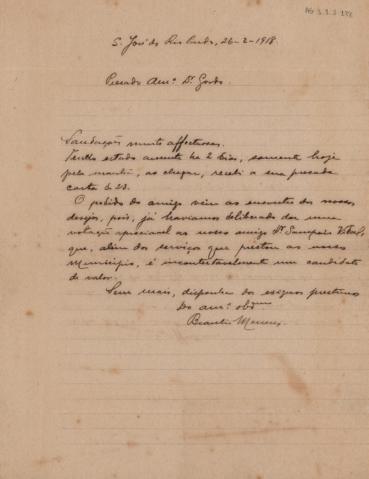 AG 3.1.3.178
S. José do Rio Pardo, 26-2-1918.
Presado Amº. Dr. Gordo.
Saudações muito affectuosas.
Tendo estado ausente ha 2 dias, somente hoje
pela manhã, ao chegar, recebi a sua presada
carta de 23.
O pedido do amigo vem ao encontro dos nossos
desejos, pois, já haviamos deliberado dar uma
votação ao nosso amigo Dr. Sampaio Vidal,
que, alem dos serviços que prestou ao nosso
Municipio, é incontestavelmente um candidato
de valor.
Sem mais, disponha dos exiguos prestimos
do amº. obrº